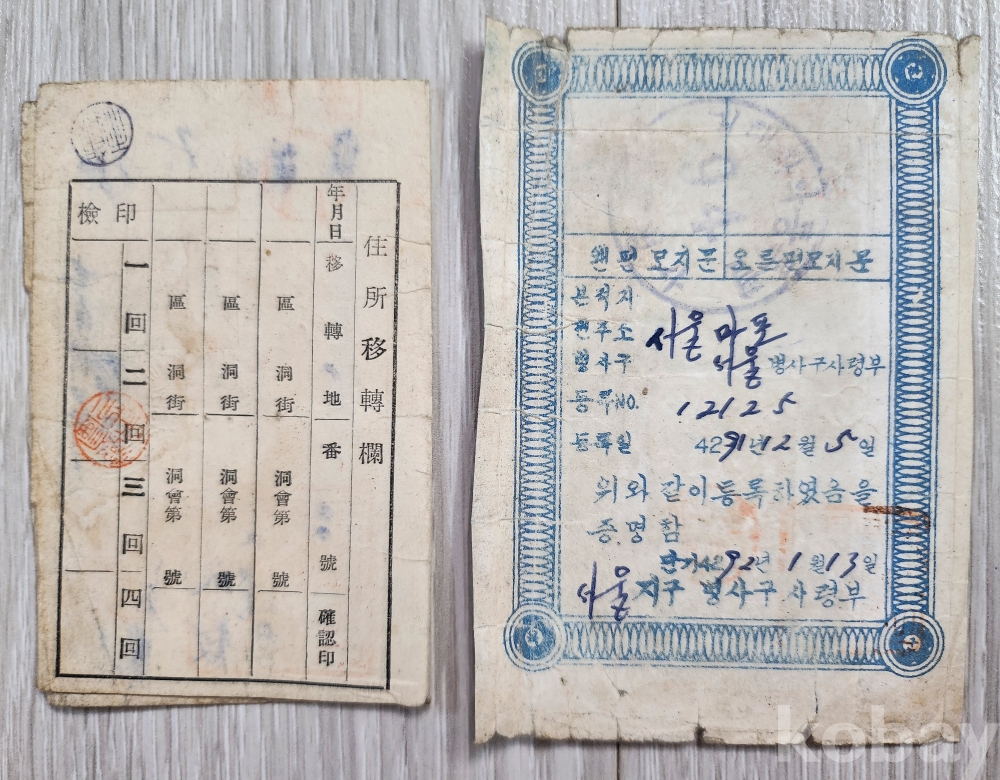 住所移轉欄
年月日 移轉地番號 確認印
區 洞街 洞會第 號
區 洞街 洞會第 號
區 洞街 洞會第 號
檢印
一回 二回 三回 四回
왼편 모지문 오른편모지문
본적지
현주소 서울 마포
병사구 서울 병사구사령부
등록NO. 12125
등록일 4291년 12월 5일
위와 같이 등록하였음을
증명함
단기4292년 1월 13일
서울지구 병사구 사령부
kobay